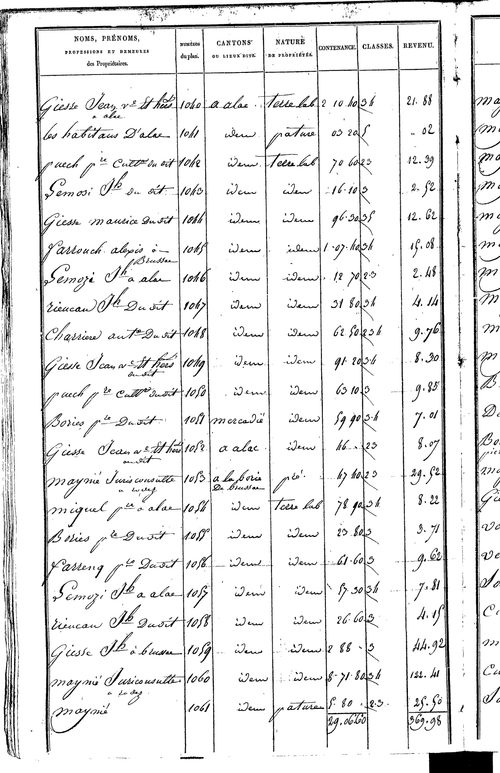 NOMS, PRÉNOMS, PROFESSIONS ET DEMEURES des Propriétaires. NUMÉROS du plan. CANTONS OU LIEUX DITS. NATURE DE PROPRIÉTÉS. CONTENANCE. CLASSES. REVENU.
Giesse Jean 1040 a alac terre lab 2 10 40 34 21. 88
a alac
les habitans D'alac 1041 idem pature 03 20 5 02
puech pre cultr du dit 1042 idem terre lab 70 60 23 12. 39
Gemosi Jh du dit 1043 idem idem 16.10 3 2. 52
Giesse maurice Dudit 1044 idem idem 96.30 35 12. 62
Farrouch alexis à 1045 idem idem 1.07.40 34 15. 08
Brussac
Gemozi Jh a alac 1046 idem idem 12 70 23 2. 48
rieucau Jh Dudit 1047 idem idem 31 80 34 4. 14
Charrine ante Dudit 1048 idem idem 62 50 234 9. 76
Giesse Jean 1049 idem idem 91.20 34 8. 30
du dit
puech pre cultr Dudit 1050 idem idem 63 10 3 9. 85
Bories pre Dudit 1051 mercadié idem 59 90 34 7. 01
Giesse Jean 1052 a alac idem 46 23 8. 07
du dit
maynié Jurisconsulte 1053 a la borie pré 67 40 23 29. 52
De brussac
miquel pre à alac 1054 idem terre lab 78 90 34 8. 22
Bories pre Dudit 1055 idem idem 23 80 3 3. 71
Farrenq pre Dudit 1056 idem idem 61.60 3 9. 62
Gemozi Jh a alac 1057 idem idem 57.30 34 7. 81
rieucau Jh Dudit 1058 idem idem 26.60 3 4. 15
Giesse Jh à brussac 1059 idem idem 2 88 3 44. 92
maynié Jurisconsulte 1060 idem idem 8.71.80 34 122. 41
maynié 1061 idem pature 5. 80 23 25. 50
29.06 60 369.98